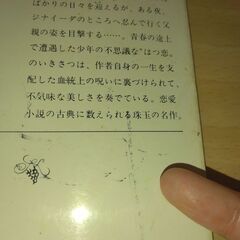 ばかりの日々を迎えるが、ある夜、
ジナイーダのところへ忍んで行く父
親の姿を目撃する……。青春の途上
で遭遇した少年の不思議な"はつ恋"
のいきさつは、作者自身の一生を支
配した血統上の呪いに裏づけられて、
不気味な美しさを奏でている。恋愛
小説の古典に数えられる珠玉の名作。